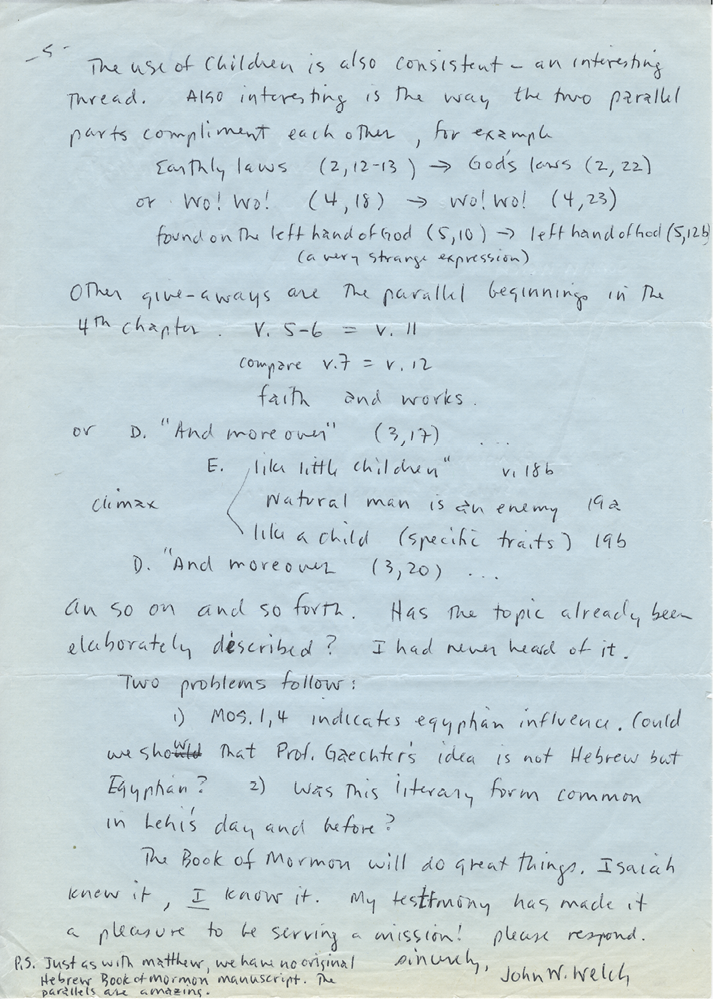 -5-
The use of Children is also consistent - an interesting
Thread. Also interesting is the way the two parallel
parts compliment each other, for example
Earthly laws (2,12-13) → God's laws (2,22)
or Wo! Wo! (4,18) → Wo! Wo! (4,23)
found on the left hand of God (5,10) → left hand of God (5,12b)
(a very strange expression)
Other give-aways are the parallel beginnings in the
4th chapter. V. 5-6 = v. 11
compare v.7 = v. 12
faith and works.
or D. "And moreover" (3,17) ...
E. like little children" v. 18b
climax Natural man is an enemy 19a
like a child (specific traits) 19b
D. "And moreover (3,20) ...
an so on and so forth. Has the topic already been
elaborately described? I had never heard of it.
Two problems follow:
1) Mos. 1,4 indicates egyptian influence. Could
we show that Prof. Gaechter's idea is not Hebrew but
Egyptian? 2) Was this literary form common
in Lehi's day and before?
The Book of Mormon will do great things. Isaiah
knew it, I know it. My testimony has made it
a pleasure to be serving a mission! please respond.
sincerely,
John W. Welch
P.S. Just as with matthew, we have no original
Hebrew Book of Mormon manuscript. The
parallels are amazing.